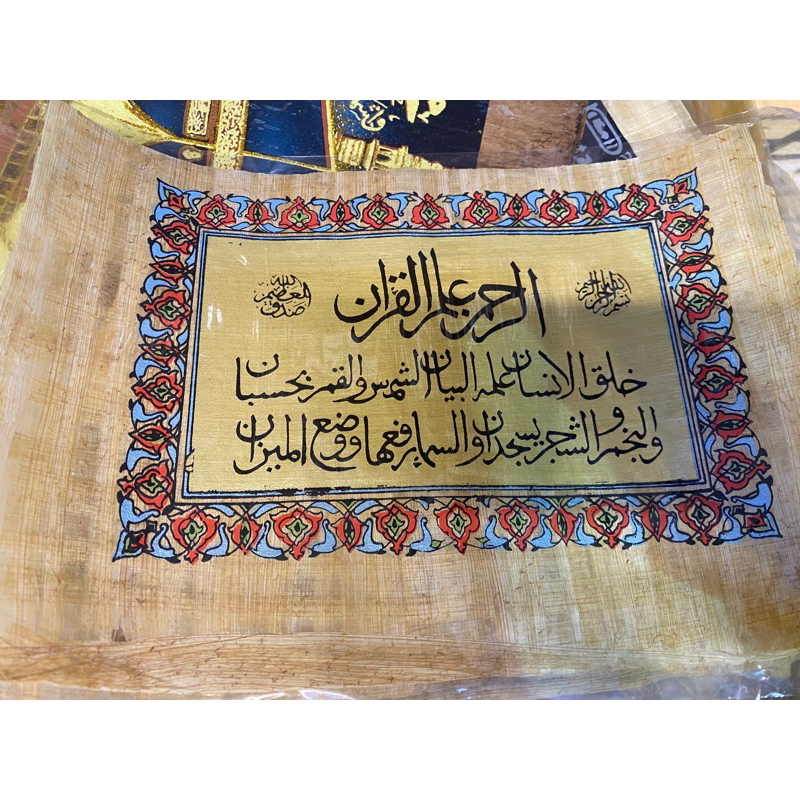 بسم الله الرحمن الرحيم
الرحمن علم القران
صدق الله العظيم
خلق الانسان علمه البيان الشمس والقمر بحسبان
والنجم والشجر يسجدان والسما رفعها ووضع الميزان